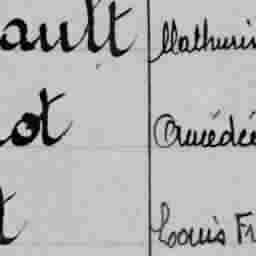 ault Mathuri
ot Amédée
t Louis Fr